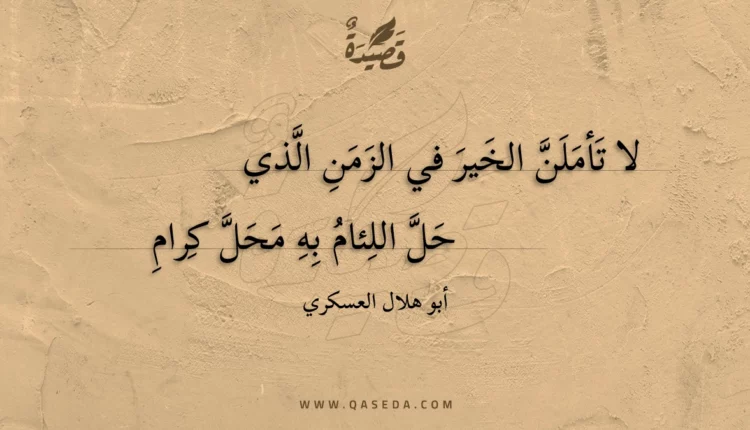 قَصِيدَةٌ
لا تَأمَلَنَّ الخَيرَ في الزَمَنِ الَّذي
حَلَّ اللِئامُ بِهِ مَحَلَّ كِرامِ
أبو هلال العسكري
WWW.QASEDA.COM